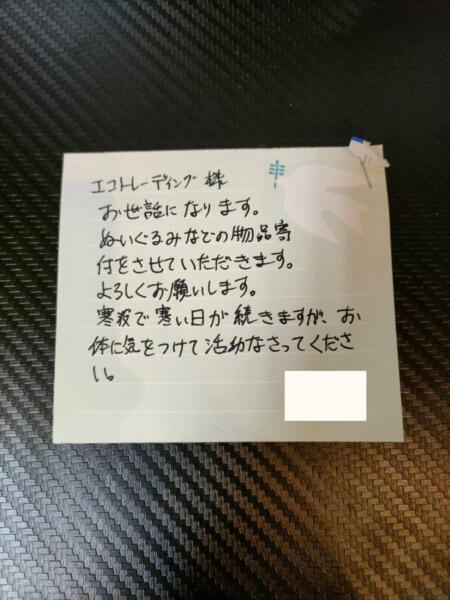 エコトレーディング 様
お世話になります。
ぬいぐるみなどの物品寄
付をさせていただきます。
よろしくお願いします。
寒波で寒い日が続きますが、お
体に気をつけて活動なさってくださ
い。